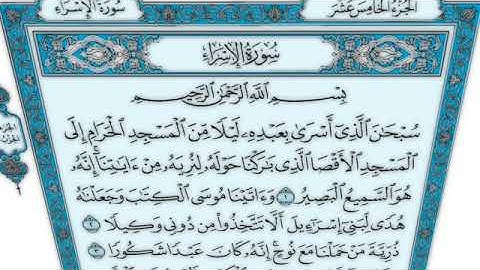 سُورَةُ الإِسْرَاءِ
الجُزْءُ الخَامِسَ عَشَرَ
سُورَةُ الإِسْرَاءِ
بِسْمِ اللَّهِ الرَّحْمَٰنِ الرَّحِيمِ
سُبْحَٰنَ الَّذِي أَسْرَىٰ بِعَبْدِهِ لَيْلًا مِّنَ الْمَسْجِدِ الْحَرَامِ إِلَى
الْمَسْجِدِ الْأَقْصَا الَّذِي بَٰرَكْنَا حَوْلَهُ لِنُرِيَهُ مِنْ ءَايَٰتِنَا إِنَّهُ
هُوَ السَّمِيعُ الْبَصِيرُ ١ وَءَاتَيْنَا مُوسَى الْكِتَٰبَ وَجَعَلْنَٰهُ
هُدًى لِّبَنِي إِسْرَٰءِيلَ أَلَّا تَتَّخِذُوا مِن دُونِي وَكِيلًا ٢
ذُرِّيَّةَ مَنْ حَمَلْنَا مَعَ نُوحٍ إِنَّهُ كَانَ عَبْدًا شَكُورًا ٣